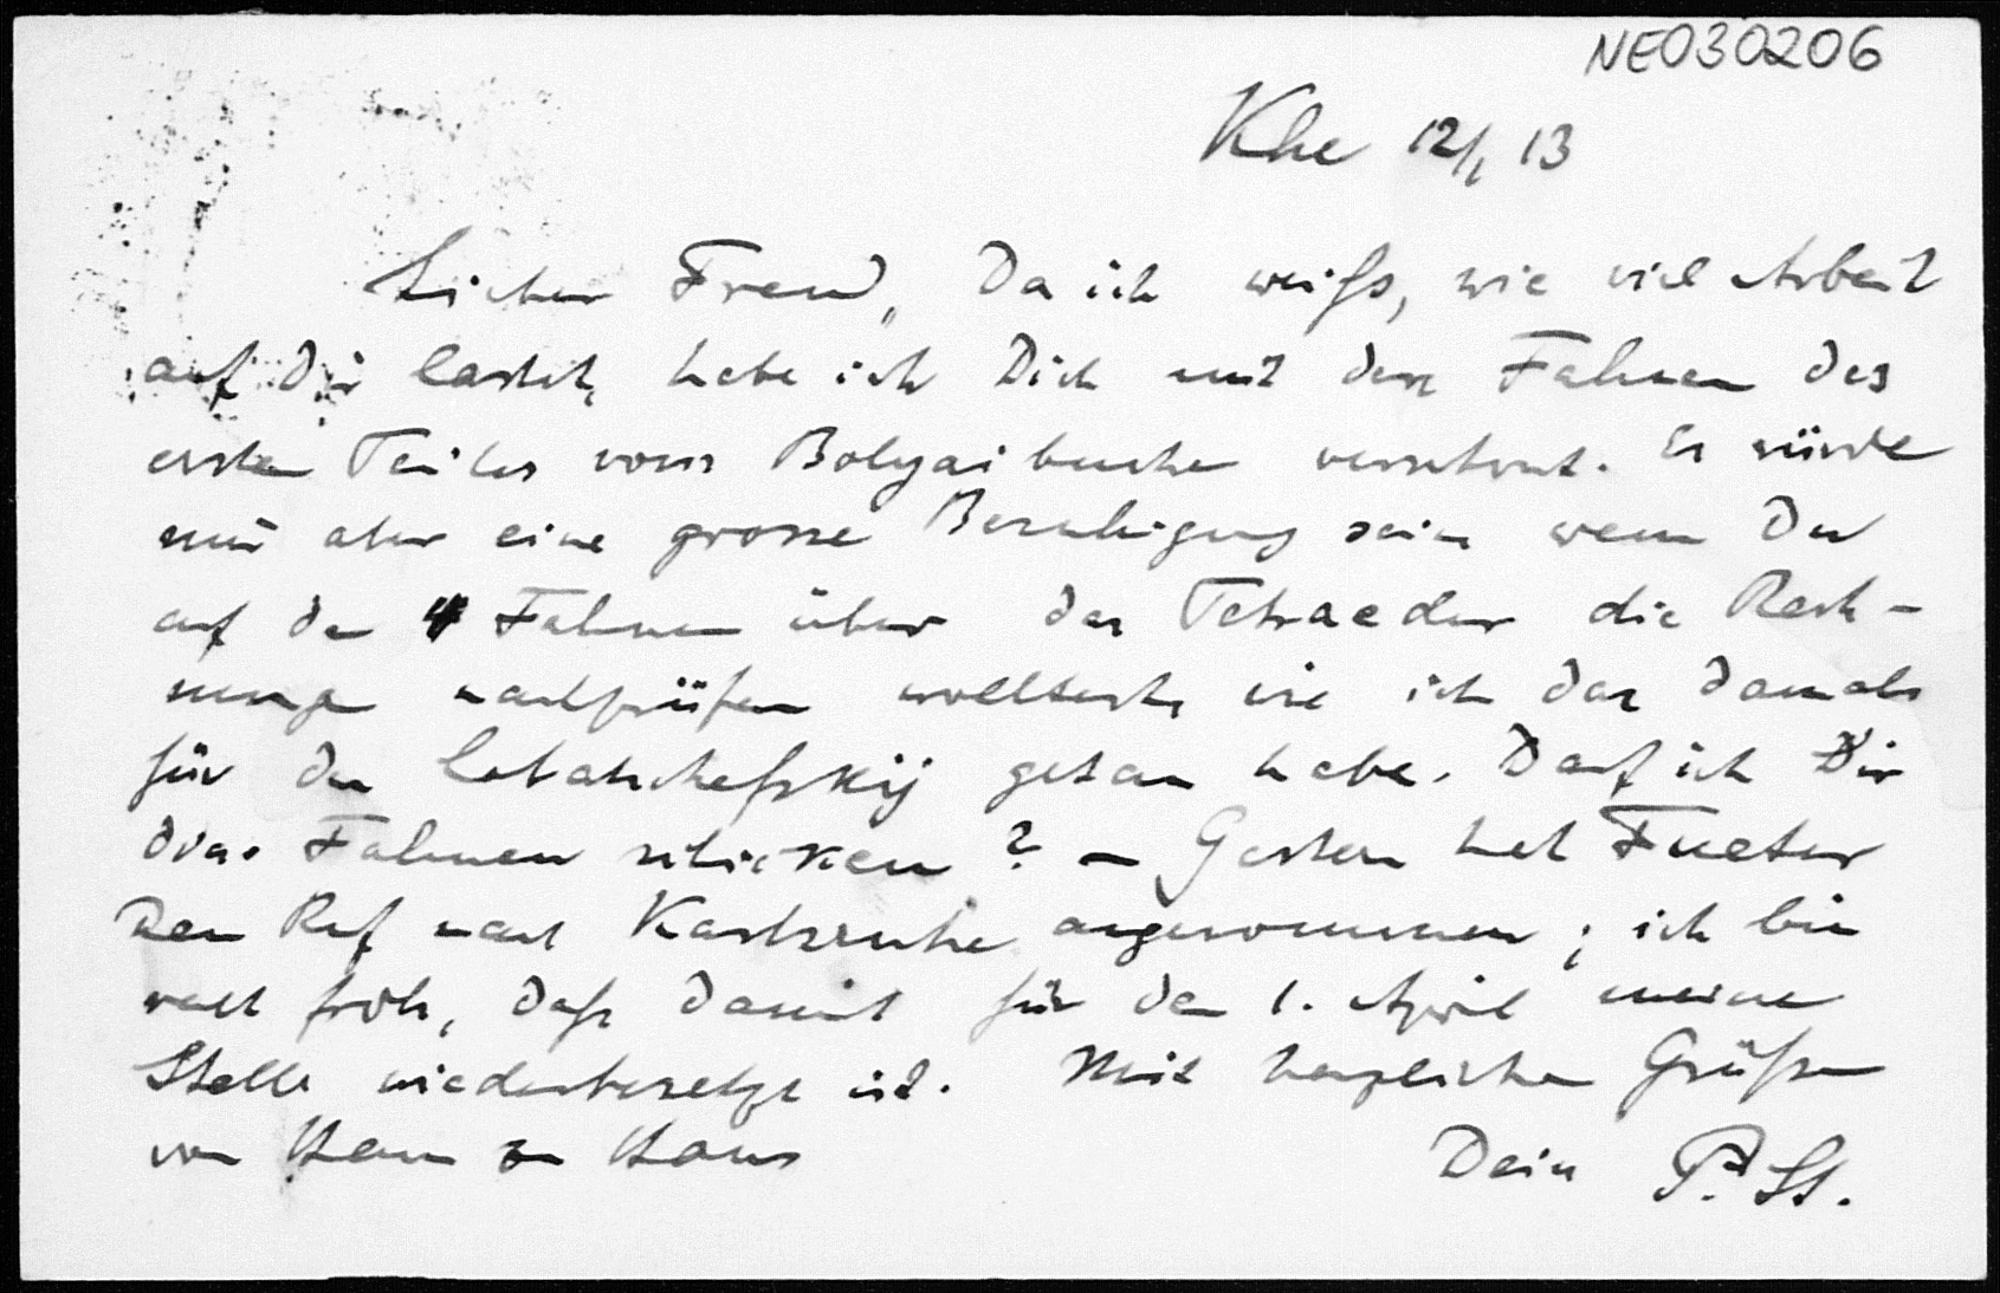 NE030206
Khe 12/1 13
Lieber Freund, Da ich weiß, wie viel Arbeit
auf Dir lastet, habe ich Dich mit den Fahnen des
ersten Teiles vom Bolyaibuche verschont. Es würde
mir aber eine grosse Beruhigung sein wenn Du
auf den 4 Fahnen über das Tetraeder die Rech-
nungen nachprüfen wolltest, wie ich das damals
für den Lobatschefskij getan habe. Darf ich Dir
diese Fahnen schicken? – Gestern hat Fueter
den Ruf nach Karlsruhe angenommen; ich bin
recht froh, daß damit für den 1. April meine
Stelle wiederbesetzt ist. Mit herzlichen Grüßen
von Haus zu Haus
Dein P. St.